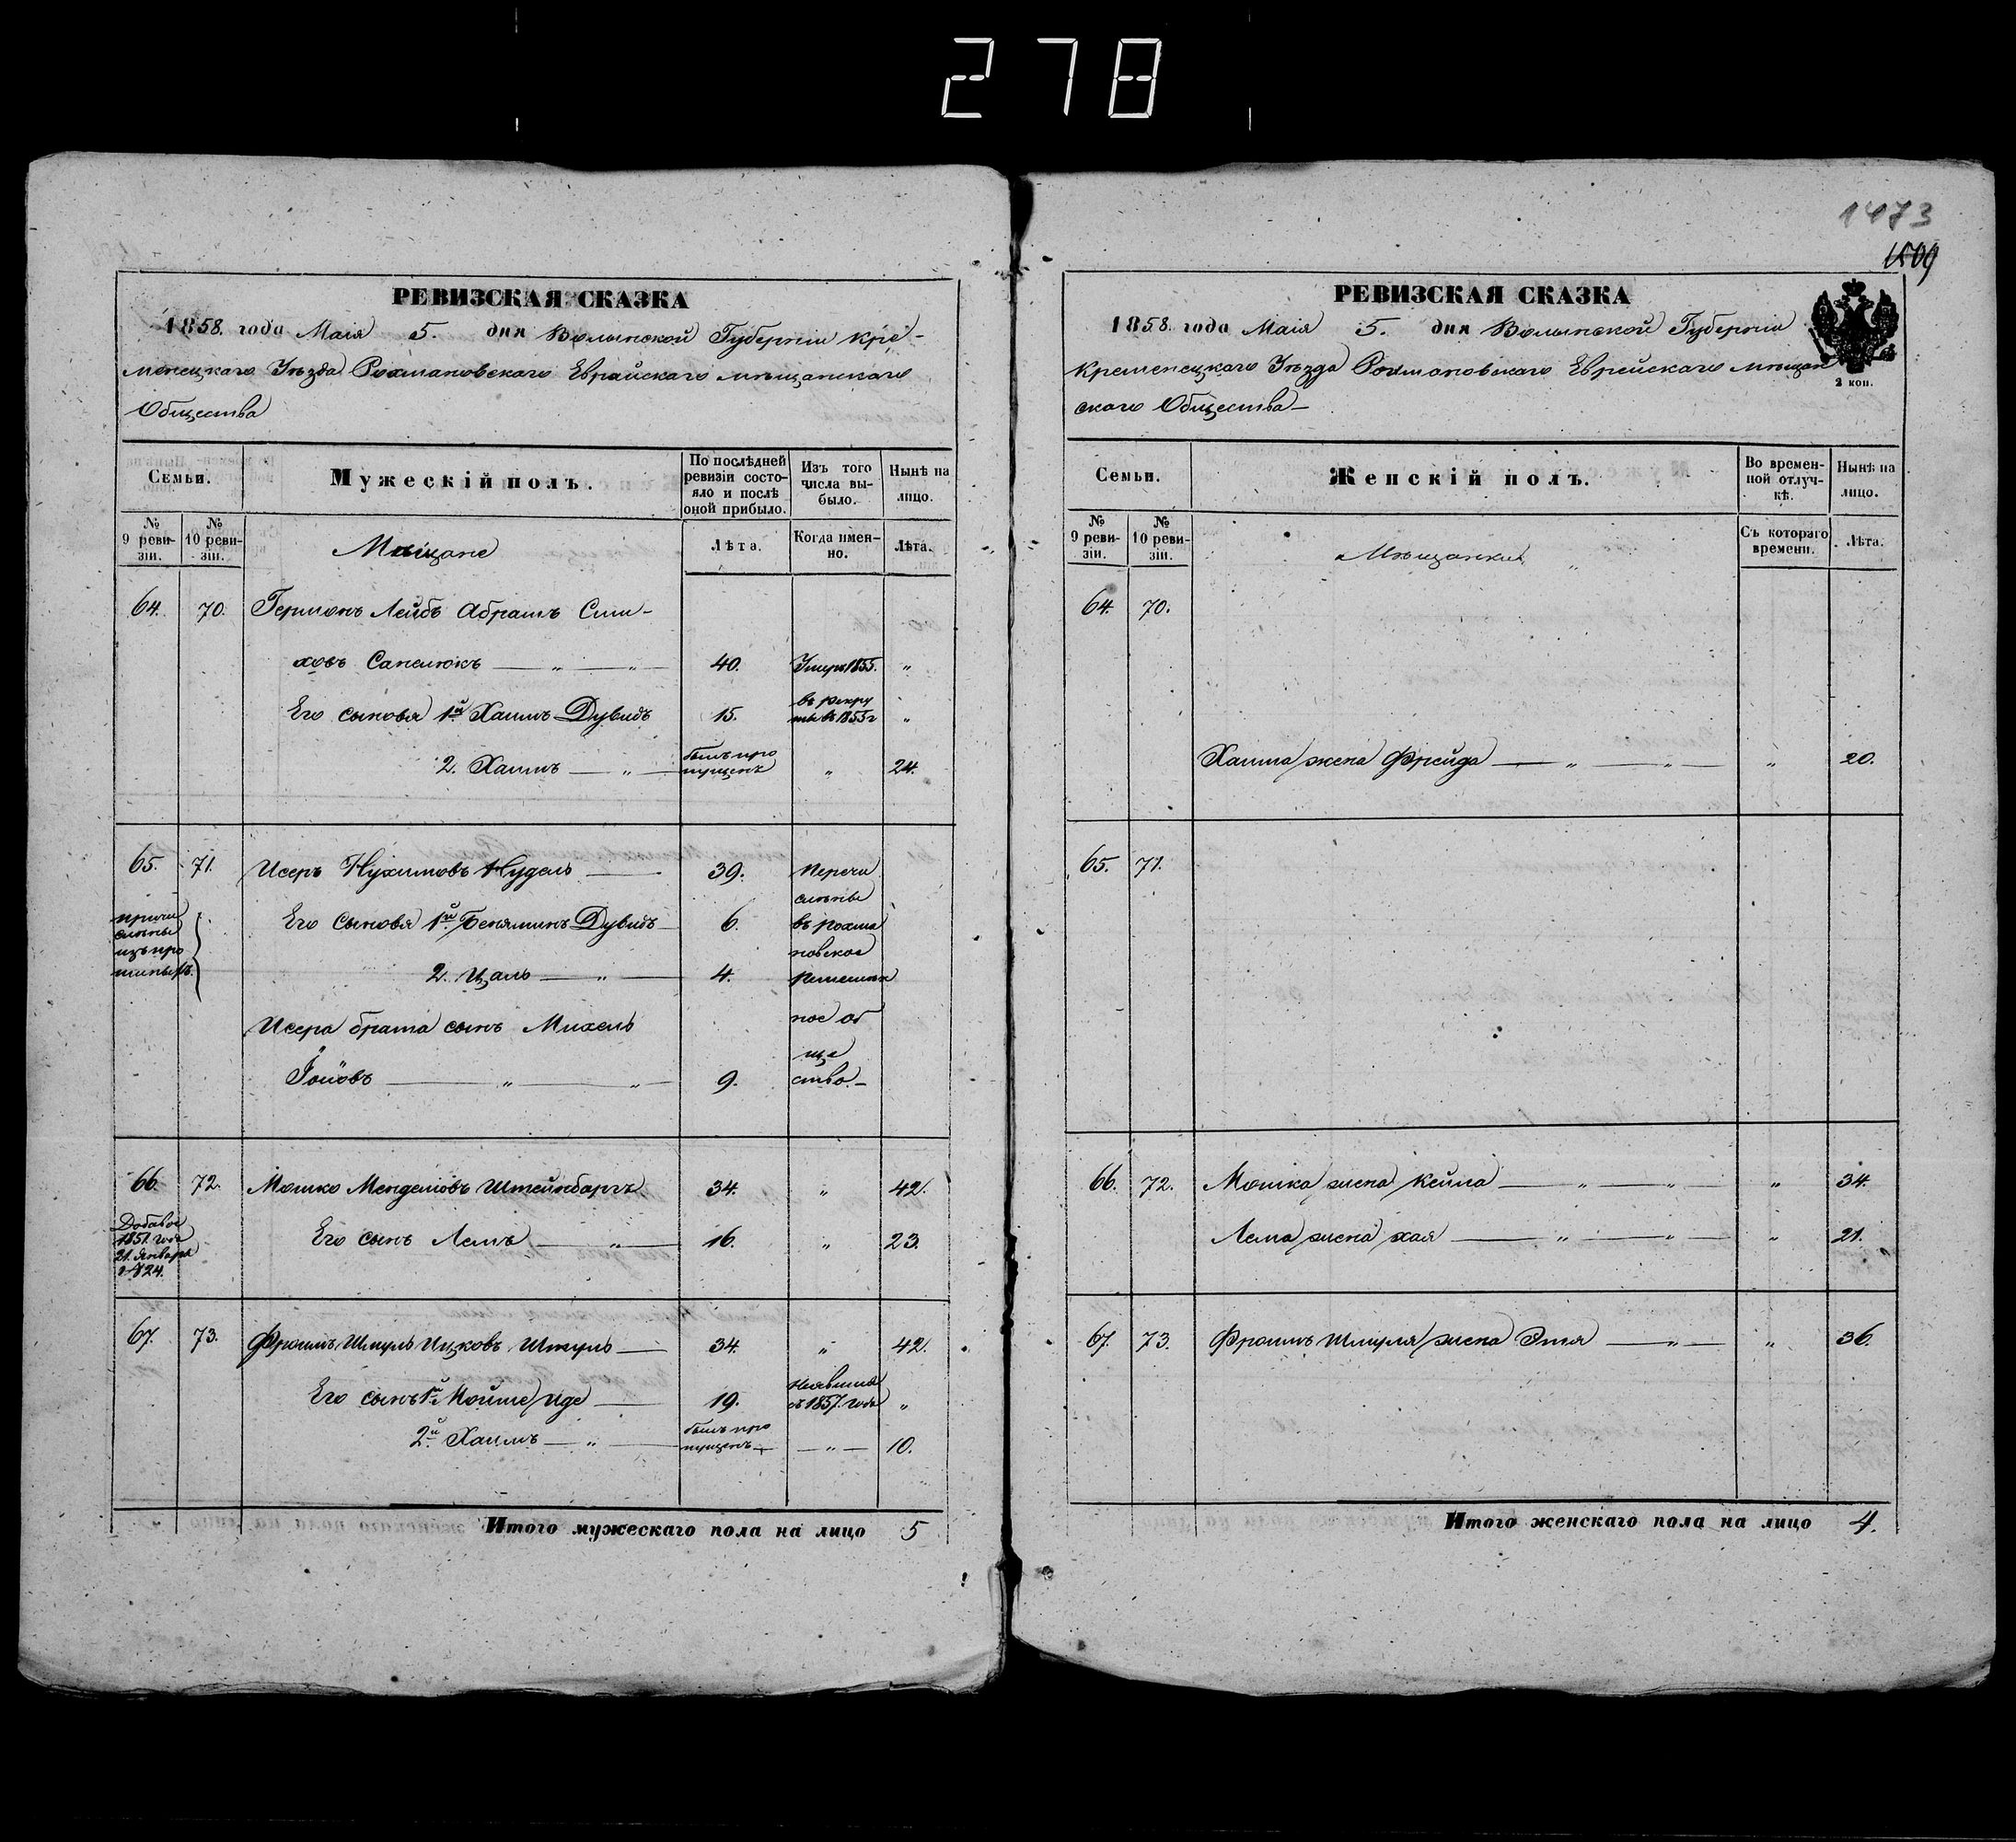 278
РЕВИЗСКАЯ СКАЗКА
1858. года Маія 5. дня Волынской Губерніи Кре-
менецкаго Уѣзда Рохмановскаго Еврейскаго мѣщанскаго
Общества
Семьи.
Мужескій полъ.
По послѣдней ревизіи состояло и послѣ оной прибыло.
Изъ того числа выбыло.
Нынѣ на лицо.
№ 9 ревизіи.
№ 10 ревизіи.
Мѣщане
Лѣта.
Когда именно.
Лѣта.
64. 70. Лейбъ Абрамъ Сим-
ховъ 40. Умеръ 1855. „
Его сыновья 1й Хаимъ Дувидъ 15. въ рекру ты въ 1853 г „
2. Хаимъ — „ — былъ про пущенъ „ 24.
65. 71. Исеръ Нухимовъ Нудель — 39. Перечи
слены
причи слены изъ про
Его сыновья 1й Беняминъ Дувидъ 6. въ Рохма
новское
2. Цаль — „ — 4.
Исера брата сынъ Михель ное об
ще
9. ство. —
66. 72. Мошко Менделювъ Штейнбаргъ 34. „ 42.
Добавоч 1851. года 21. Января № 24.
Его сынъ Лемъ — „ — 16. „ 23.
67. 73. Фроимъ Шмуль Ицковъ Шпуль — 34. „ 42.
Его сынъ 1й Мойше Иде — 19. съ 1857. года „
2й Хаимъ — „ — былъ про пущенъ — „ — 10.
Итого мужескаго пола на лицо 5
1473
1509
РЕВИЗСКАЯ СКАЗКА
1858. года Маія 5. дня Волынской Губерніи
Кременецкаго Уѣзда Рохмановскаго Еврейскаго мѣщан
скаго Общества —
2 коп.
Семьи.
Женскій полъ.
Во временной отлучкѣ.
Нынѣ на лицо.
№ 9 ревизіи.
№ 10 ревизіи.
Мѣщанки
Съ котораго времени.
Лѣта.
64. 70.
Хаима жена Фрейда — „ — „ — „ 20.
65. 71.
66. 72. Мошка жена Кейла — „ — „ — „ 34.
Лема жена Хая — „ — „ — „ 21.
67. 73. Фроимъ Шмуля жена Этя — „ — „ 36.
Итого женскаго пола на лицо 4.